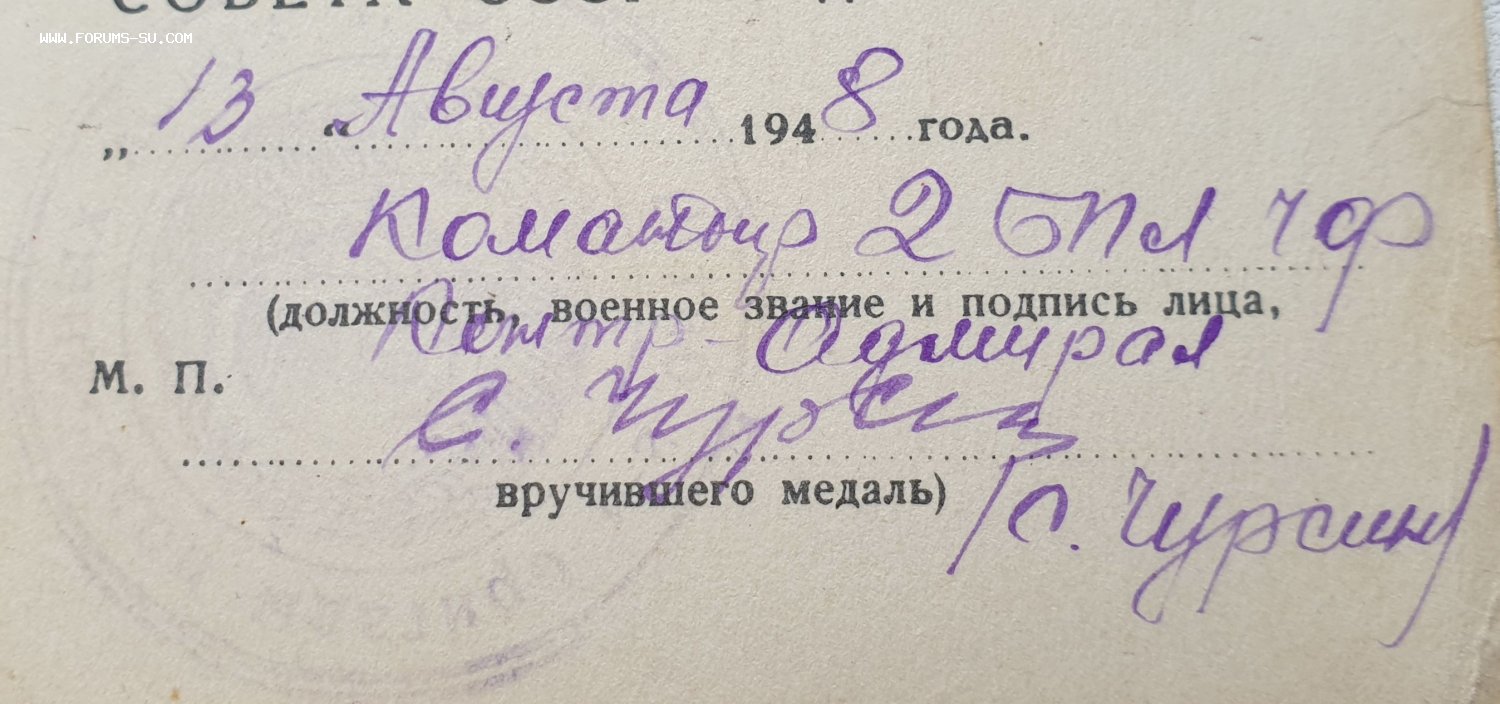 СОВЕТА СССР
WWW.FORUMS-SU.COM
„13 “ Августа 1948 года.
Командир 2 БПЛ ЧФ
(должность, военное звание и подпись лица,
Контр-Адмирал
М. П.
С. Чурсин
вручившего медаль)
(С. Чурсин)